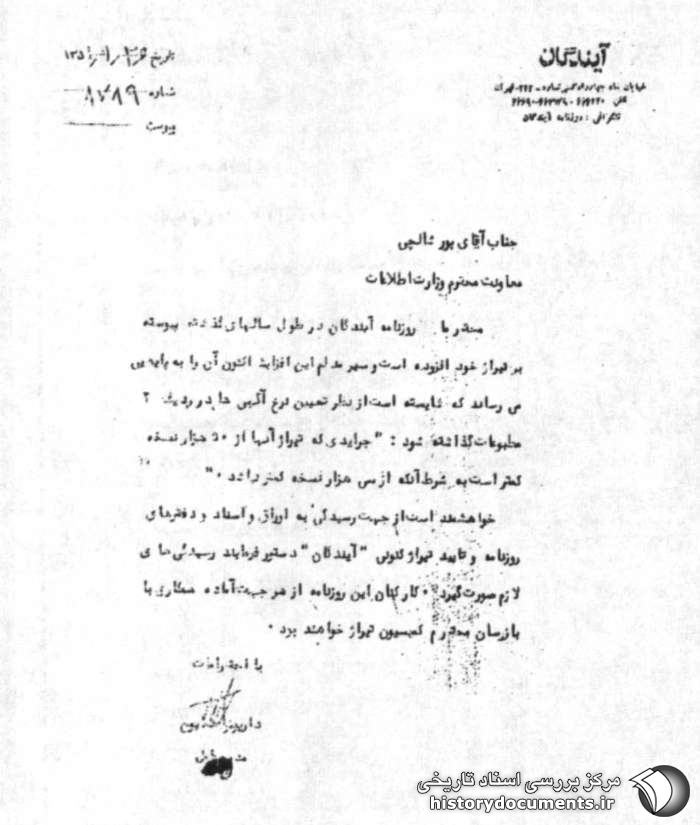 آیندگان
خیابان شاه تهران
تلفن
تلگرافی : روزنامه آیندگان
تاریخ
شماره ۸۷۸۹
پیوست
جناب آقای پور شالچی
معاونت محترم وزارت اطلاعات
محترما روزنامه آیندگان در طول سالهای گذشته پیوسته
بر تیراژ خود افزوده است و سیر مداوم این افزایش اکنون آن را به پایه‌یی
می رساند که شایسته است از نظر تعیین نرخ آگهی ها در ردیف ۲
مطبوعات گذاشته شود : " جرایدی که تیراژ آنها از ۵۰ هزار نسخه
کمتر است به شرط آنکه از سی هزار نسخه کمتر نباشد . "
خواهشمند است از جهت رسیدگی به اوراق و اسناد و دفترهای
روزنامه و تایید تیراژ کنونی " آیندگان " دستور فرمایند رسیدگی های
لازم صورت گیرد . کارکنان این روزنامه از هر جهت آماده همکاری با
بازرسان محترم کمیسیون تیراژ خواهند بود .
با احترامات
داریوش همایون
مرکز بررسی اسناد تاریخی
historydocuments.ir